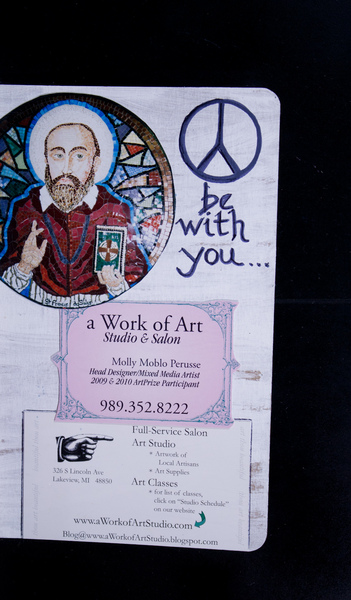 be
with
you...
a Work of Art
Studio & Salon
Molly Moblo Perusse
Head Designer/Mixed Media Artist
2009 & 2010 ArtPrize Participant
989.352.8222
Full-Service Salon
Art Studio
* Artwork of
Local Artisans
* Art Supplies
Art Classes
* for list of classes,
click on "Studio Schedule"
on our website
326 S Lincoln Ave
Lakeview, MI 48850
www.aWorkofArtStudio.com
Blog@www.aWorkofArtStudio.blogspot.com